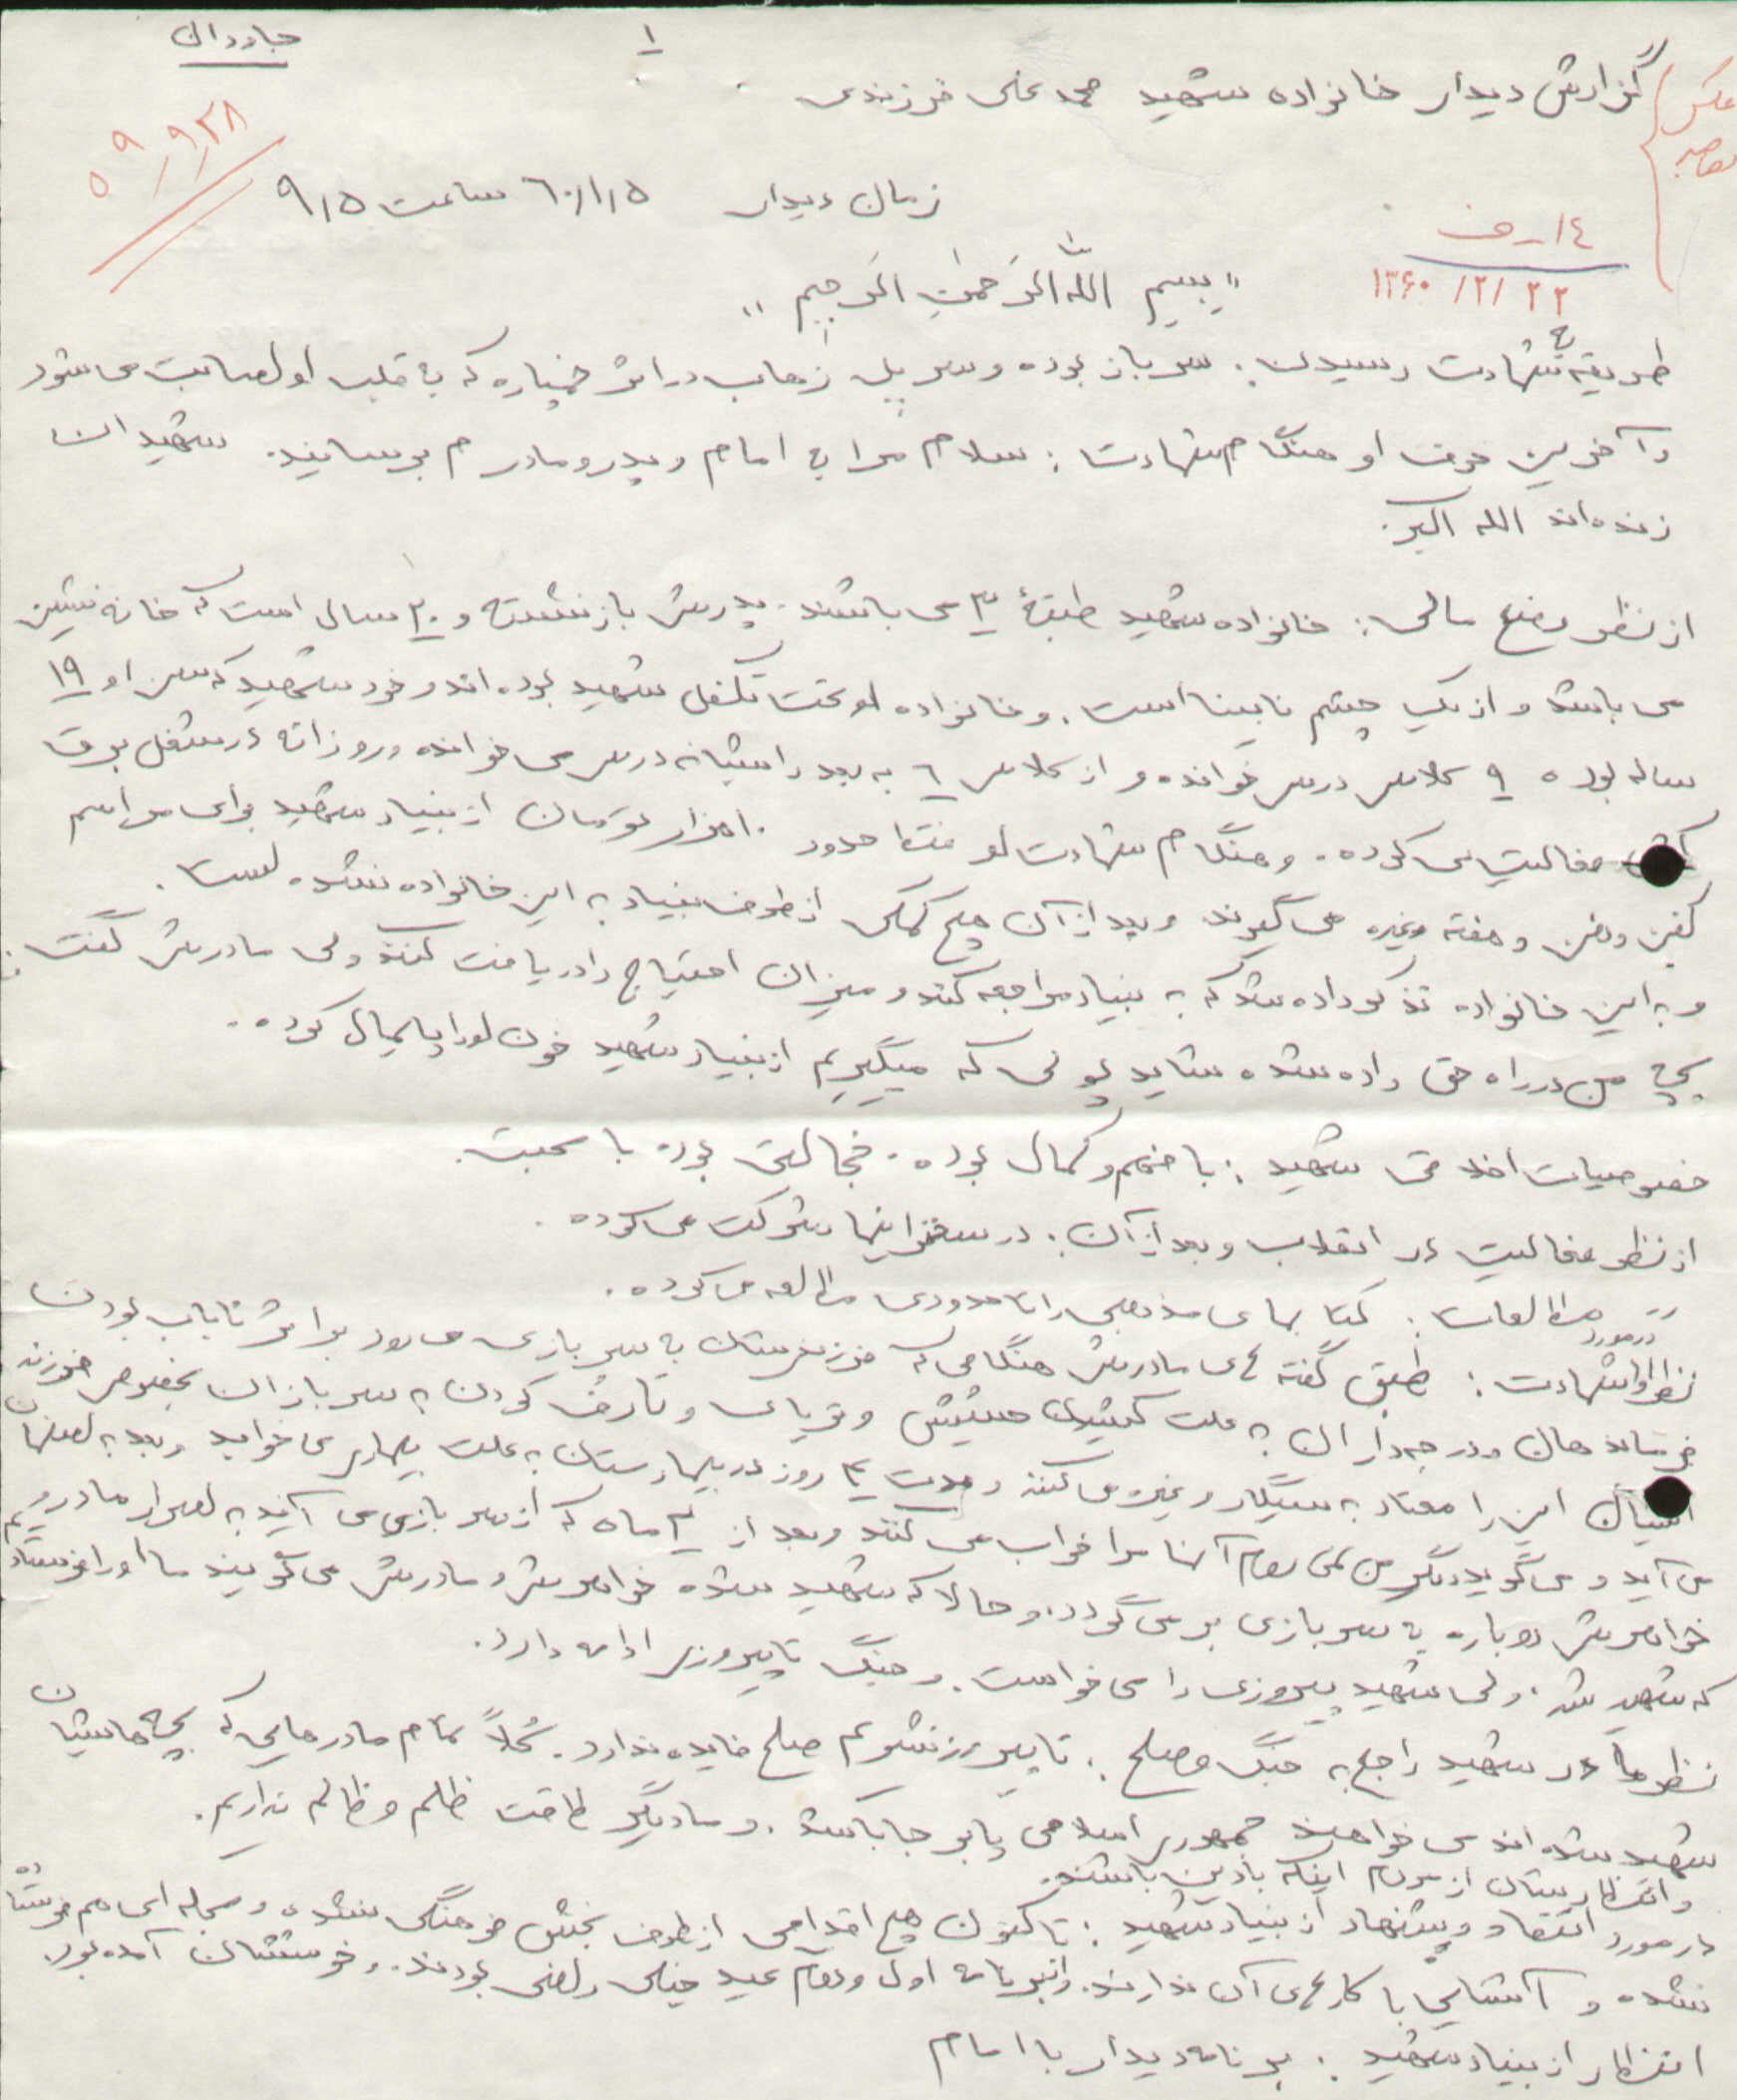 جاودان
۱
گزارش دیدار خانواده شهید محمد علی فرزندی
عکس
۵۹/۹/۲۸
زمان دیدار ۶۰/۱/۱۵ ساعت ۹/۵
۱۴-ف
۱۳۶۰/۲/۲۲
" بسیم الله الرَحمنِ الرَحیم "
طریقه به شهادت رسیدن: سرباز بوده و سرپل زهاب در اثر خمپاره که به قلب او اصابت می شود
و آخرین حرف او هنگام شهادت: سلام مرا به امام و پدر و مادرم برسانید. شهیدان
زنده اند الله اکبر.
از نظر وضع مالی: خانواده شهید طبقۀ ۳ می باشند. پدرش بازنشسته و ۲۰ سال است که خانه نشین
می باشد و از یک چشم نابینا است. و خانواده او تحت تکفل شهید بوده اند و خود شهید که سن او ۱۹
ساله بوده ۹ کلاس درس خوانده و از کلاس ۶ به بعد را شبانه درس می خوانده و روزانه در شغل برق
فعالیت می کرده. و هنگام شهادت او فقط حدود ۱۰ هزار تومان از بنیاد شهید برای مراسم
کفن و دفن و هفته و غیره می گیرند و بعد از آن هیچ کمکی از طرف بنیاد به این خانواده نشده است.
و به این خانواده تذکر داده شد که به بنیاد مراجعه کنند و میزان احتیاج را دریافت کنند ولی مادرش گفت:
بچه من در راه حق داده شده شاید پولی که میگیریم از بنیاد شهید خون او را پایمال کرده.
خصوصیات اخلاقی شهید: با فهم و کمال بوده. خجالتی بوده با محبت.
از نظر فعالیت در انقلاب و بعد از آن: در سخنرانیها شرکت می کرده.
" " مطالعات: کتابهای مذهبی را تا حدودی مطالعه می کرده.
نظر او در مورد شهادت: طبق گفته های مادرش هنگامی که فرزندشان به سربازی می رود بر اثر ناباب بودن
فرماندهان و درجه داران به علت کشیدن حشیش و تریاک و تعارف کردن به سربازان بخصوص فرزند
ایشان این را معتاد به سیگار و غیره می کنند و مدت ۴ روز در بیمارستان به علت بیماری می خوابد و بعد به اصفهان
می آید و می گوید دیگر من نمی روم آنها مرا خراب می کنند و بعد از ۲ ماه که از سربازی می آید به اصرار مادر و
خواهرش دوباره به سربازی برمی گردد. و حالا که شهید شده خواهرش و مادرش می گویند ما او را فرستادیم
که شهید شد. ولی شهید پیروزی را می خواست. و جنگ تا پیروزی ادامه دارد.
نظر مادر شهید راجع به جنگ و صلح: تا پیروز نشویم صلح فایده ندارد. کُلاً تمام مادرهایی که بچه هایشان
شهید شده اند می خواهند جمهوری اسلامی پا بر جا باشد. و ما دیگر طاقت ظلم و ظالم نداریم.
و انتظارشان از مردم اینکه با دین باشند.
در مورد انتقاد و پیشنهاد از بنیاد شهید: تا کنون هیچ اقدامی از طرف بخش فرهنگی نشده و مجله ای هم فرستاده
نشده و آشنایی با کارهای آن ندارند. از برنامه اول و دوم عید خیلی راضی بودند. و خوششان آمده بود.
انتظار از بنیاد شهید: برنامه دیدار با امام